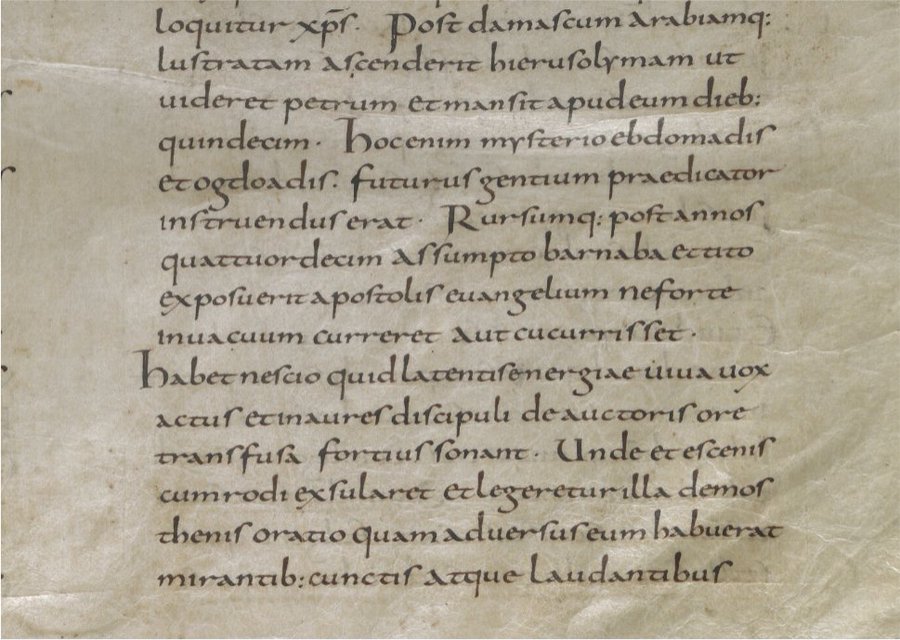 loquitur xp̅s. Post damascum arabiamq:
lustratam ascenderit hierusolymam ut
uideret petrum et mansit apud eum dieb:
quindecim. Hoc enim mysterio ebdomadis
et ogdoadis. futurus gentium praedicator
instruendus erat. Rursumq: post annos
quattuordecim assumpto barnaba et tito
exposuerit apostolis euangelium ne forte
inuacuum curreret aut cucurrisset.
Habet nescio quid latentis energiae uiua uox
actus et in aures discipuli de auctoris ore
transfusa fortius sonant. Unde et escenis
cum rodi exsularet et legeretur illa demos
thenis oratio quam aduersus eum habuerat
mirantib: cunctis atque laudantibus